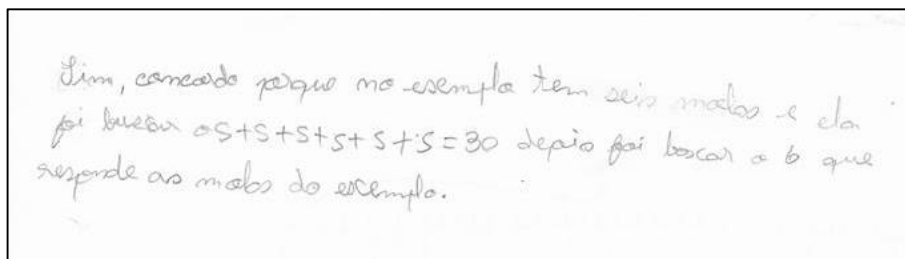 Sim, concordo porque no esemplo tem seis modos e ela
foi buscar o 5+5+5+5+5+5=30 depois foi boscar o 6 que
responde as modos do escemplo.